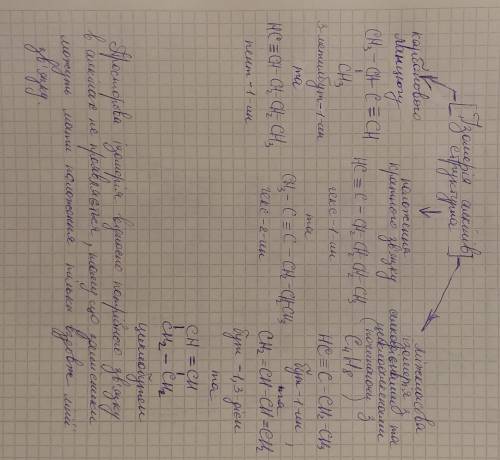 Ізомерія алкінів
структурна
карбонового
ланцюгу
CH3 - CH - C ≡ CH
CH3
3-метилбут-1-ин
та
HC ≡ CH - CH2 CH2 CH3
пент-1-ин
положення
кратного зв'язку
HC ≡ C - CH2 CH2 CH2 - CH3
гекс-1-ин
та
CH3 - C ≡ C - CH2 - CH2 CH3
гекс-2-ин
міжкласова
ізомерія
з
алкадієнами та
циклоалкенами
(починаючи з
C4H8)
HC ≡ C - CH2 - CH3
бут-1-ин,
та
CH2 - CH - CH = CH2
бут-1,3 дієн
та
CH = CH
CH2 - CH2
циклобутен
Просторова ізомерія відносно потрійного зв'язку
в алкінах не проявляється, тому що замісники
можуть мати положення тільки вздовж лінії
зв'язку.